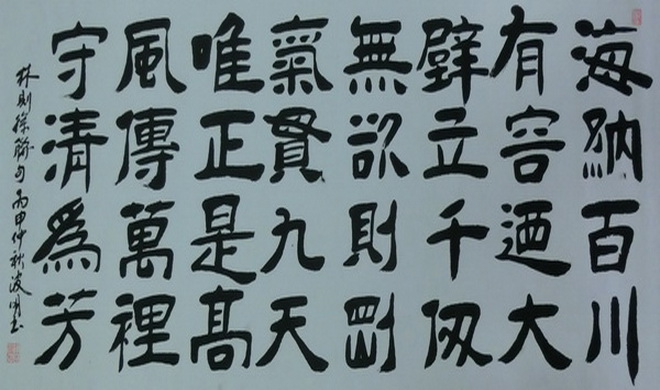 海納百川
有容迺大
壁立千仞
無欲則剛
氣貫九天
唯正是髙
風傳萬裡
守清爲芳
林則徐聯句丙申仲秋波明书